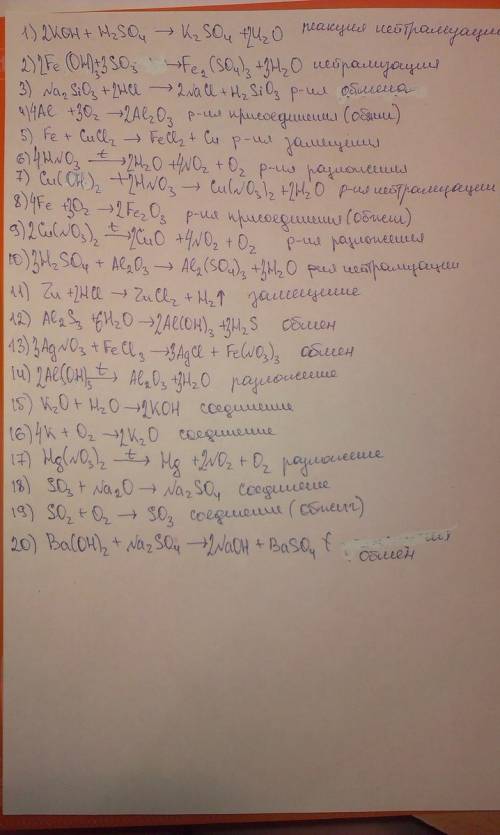 1) 2KOH + H₂SO₄ → K₂SO₄ + 2H₂O реакция нейтрализации
2) 2Fe(OH)₃+3SO₃ → Fe₂(SO₄)₃ + 3H₂O нейтрализация
3) Na₂SiO₃ + 2HCl → 2NaCl + H₂SiO₃ р-ия обмена
4) 4Al + 3O₂ → 2Al₂O₃ р-ия присоединения (обжиг)
5) Fe + CuCl₂ → FeCl₂ + Cu р-ия замещения
6) 4HNO₃ t→ 2H₂O + 4NO₂ + O₂ р-ия разложения
7) Cu(OH)₂ + 2HNO₃ → Cu(NO₃)₂ + 2H₂O р-ия нейтрализации
8) 4Fe + 3O₂ → 2Fe₂O₃ р-ия присоединения (обжиг)
9) 2Cu(NO₃)₂ t→ 2CuO + 4NO₂ + O₂ р-ия разложения
10) 3H₂SO₄ + Al₂O₃ → Al₂(SO₄)₃ + 3H₂O р-ия нейтрализации
11) Zn + 2HCl → ZnCl₂ + H₂↑ замещение
12) Al₂S₃ + 6H₂O → 2Al(OH)₃ + 3H₂S обмен
13) 3AgNO₃ + FeCl₃ → 3AgCl + Fe(NO₃)₃ обмен
14) 2Al(OH)₃ t→ Al₂O₃ + 3H₂O разложение
15) K₂O + H₂O → 2KOH соединение
16) 4K + O₂ → 2K₂O соединение
17) Hg(NO₃)₂ t→ Hg + 2NO₂ + O₂ разложение
18) SO₃ + Na₂O → Na₂SO₄ соединение
19) SO₂ + O₂ → SO₃ соединение (обжиг)
20) Ba(OH)₂ + Na₂SO₄ → 2NaOH + BaSO₄ ↓
обмен